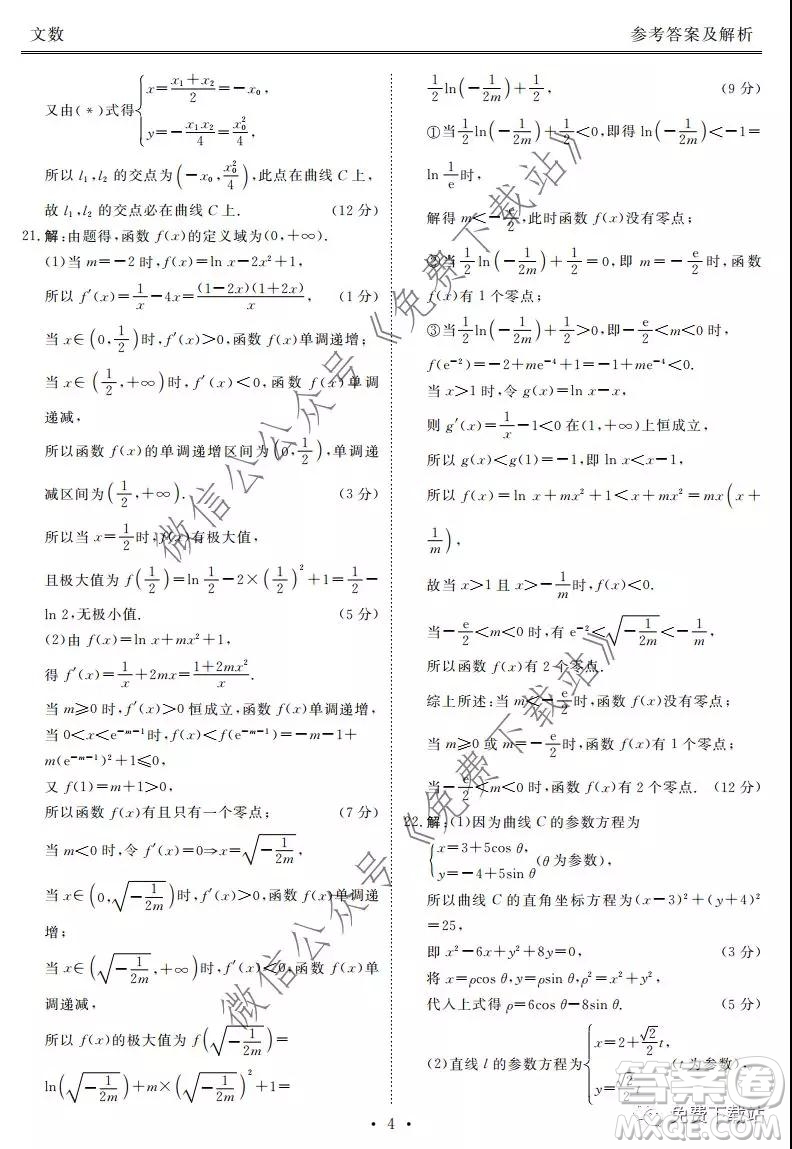 文数
参考答案及解析
又由(*)式得{x=(x₁+x₂)/2=-x₀,
y=-x₁x₂/4=x₀²/4,
所以 l₁,l₂ 的交点为(-x₀,x₀²/4),此点在曲线 C 上,
故 l₁,l₂ 的交点必在曲线 C 上. (12 分)
21.解:由题得,函数 f(x)的定义域为(0,+∞).
(1)当 m=-2 时,f(x)=ln x-2x²+1,
所以 f′(x)=1/x-4x=(1-2x)(1+2x)/x, (1 分)
当 x∈(0,1/2)时,f′(x)>0,函数 f(x)单调递增;
当 x∈(1/2,+∞)时,f′(x)<0,函数 f(x)单调
递减,
所以函数 f(x)的单调递增区间为(0,1/2),单调递
减区间为(1/2,+∞). (3 分)
所以当 x=1/2时,f(x)有极大值,
且极大值为 f(1/2)=ln1/2-2×(1/2)²+1=1/2-
ln 2,无极小值. (5 分)
(2)由 f(x)=ln x+mx²+1,
得 f′(x)=1/x+2mx=(1+2mx²)/x.
当 m≥0 时,f′(x)>0 恒成立,函数 f(x)单调递增,
当 0<x<e^(-m-1)时,f(x)<f(e^(-m-1))=-m-1+
m(e^(-m-1))²+1≤0.
又 f(1)=m+1>0,
所以函数 f(x)有且只有一个零点; (7 分)
当 m<0 时,令 f′(x)=0⇒x=√(-1/2m),
当 x∈(0,√(-1/2m))时,f′(x)>0,函数 f(x)单调递
增;
当 x∈(√(-1/2m),+∞)时,f′(x)<0,函数 f(x)单
调递减,
所以 f(x)的极大值为 f(√(-1/2m))=
ln(√(-1/2m))+m×(√(-1/2m))²+1=
1/2ln(-1/2m)+1/2, (9 分)
①当1/2ln(-1/2m)+1/2<0,即得 ln(-1/2m)<-1=
ln1/e时,
解得 m<-e/2,此时函数 f(x)没有零点;
②当1/2ln(-1/2m)+1/2=0,即 m=-e/2时,函数
f(x)有 1 个零点;
③当1/2ln(-1/2m)+1/2>0,即-e/2<m<0 时,
f(e⁻²)=-2+me⁻⁴+1=-1+me⁻⁴<0.
当 x>1 时,令 g(x)=ln x-x,
则 g′(x)=1/x-1<0 在(1,+∞)上恒成立,
所以 g(x)<g(1)=-1,即 ln x-x<-1,
所以 f(x)=ln x+mx²+1<x+mx²=mx(x+
1/m),
故当 x>1 且 x>-1/m时,f(x)<0.
当-e/2<m<0 时,有 e⁻²<√(-1/2m)<-1/m,
所以函数 f(x)有 2 个零点.
综上所述:当 m<-e/2时,函数 f(x)没有零点;
当 m≥0 或 m=-e/2时,函数 f(x)有 1 个零点;
当-e/2<m<0 时,函数 f(x)有 2 个零点. (12 分)
22.解:(1)因为曲线 C 的参数方程为
{x=3+5cos θ,
y=-4+5sin θ(θ 为参数),
所以曲线 C 的直角坐标方程为(x-3)²+(y+4)²
=25,
即 x²-6x+y²+8y=0. (3 分)
将 x=ρcos θ,y=ρsin θ,ρ²=x²+y²
代入上式得 ρ=6cos θ-8sin θ. (5 分)
(2)直线 l 的参数方程为{x=2+√2/2t,
y=√2/2t(t 为参数),
· 4 ·
微信公众号《免费下载站》
微信公众号《免费下载站》
答案圈
MXQE.COM
免费下载站